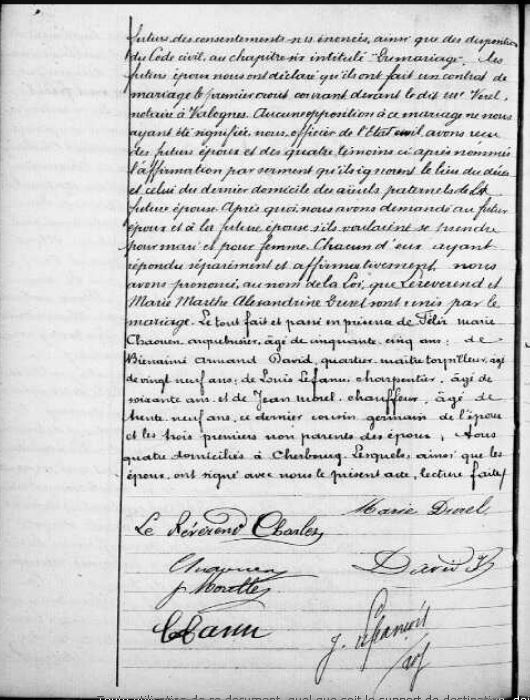 futurs, des consentements sus énoncés, ainsi que des dispositions
du Code civil, au chapitre six intitulé "Du mariage". Les
futurs époux nous ont déclaré qu'ils ont fait un contrat de
mariage le premier août courant devant le dit Me
notaire à Valognes. Aucune opposition à ce mariage ne nous
ayant été signifiée, nous, officier de l'État civil, avons reçu
des futurs époux et des quatre témoins ci-après nommés
l'affirmation par serment qu'ils ignorent le lieu du décès
et celui du dernier domicile des aïeuls paternels de la
future épouse. Après quoi, nous avons demandé au futur
époux et à la future épouse s'ils voulaient se prendre
pour mari et pour femme. Chacun d'eux ayant
répondu séparément et affirmativement, nous
avons prononcé, au nom de la Loi, que Lereverend et
Marie Marthe Alexandrine Durel sont unis par le
mariage. Le tout fait et passé en présence de Félix marie
armurier, âgé de cinquante cinq ans; de
Bienaimé Armand David, quartier-maître torpilleur, âgé
de vingt neuf ans; de Louis Lefanu, charpentier, âgé de
soixante ans et de Jean chauffeur, âgé de
trente neuf ans, ce dernier cousin germain de l'époux
et les trois premiers non parents des époux, tous
quatre domiciliés à Cherbourg. Lesquels, ainsi que les
époux, ont signé avec nous le présent acte, lecture faite
Marie Durel
Le Révérend Charles
David B